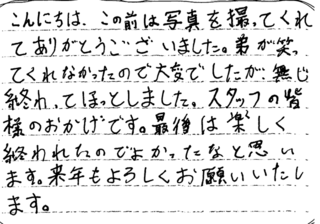 こんにちは、この前は写真を撮ってくれ
てありがとうございました。弟が笑っ
てくれなかったので大変でしたが、無じ
終わってほっとしました。スタッフの皆
様のおかげです。最後は楽しく
終われたのでよかったなと思い
ます。来年もよろしくお願いいたし
ます。